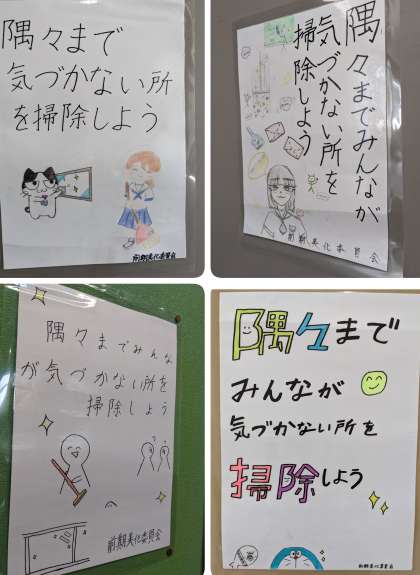 隅々まで
気づかない所
を掃除しよう
前期美化委員会
隅々までみんなが
気づかない所を
掃除しよう
前期美化委員会
隅々までみんな
が気づかない所を
掃除しよう
前期美化委員会
隅々まで
みんなが
気づかない所を
掃除しよう
前期美化委員会